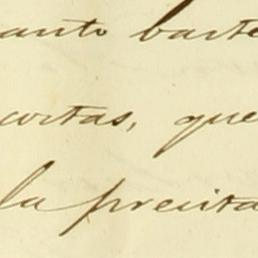 anto baste
cortas, que
la precita